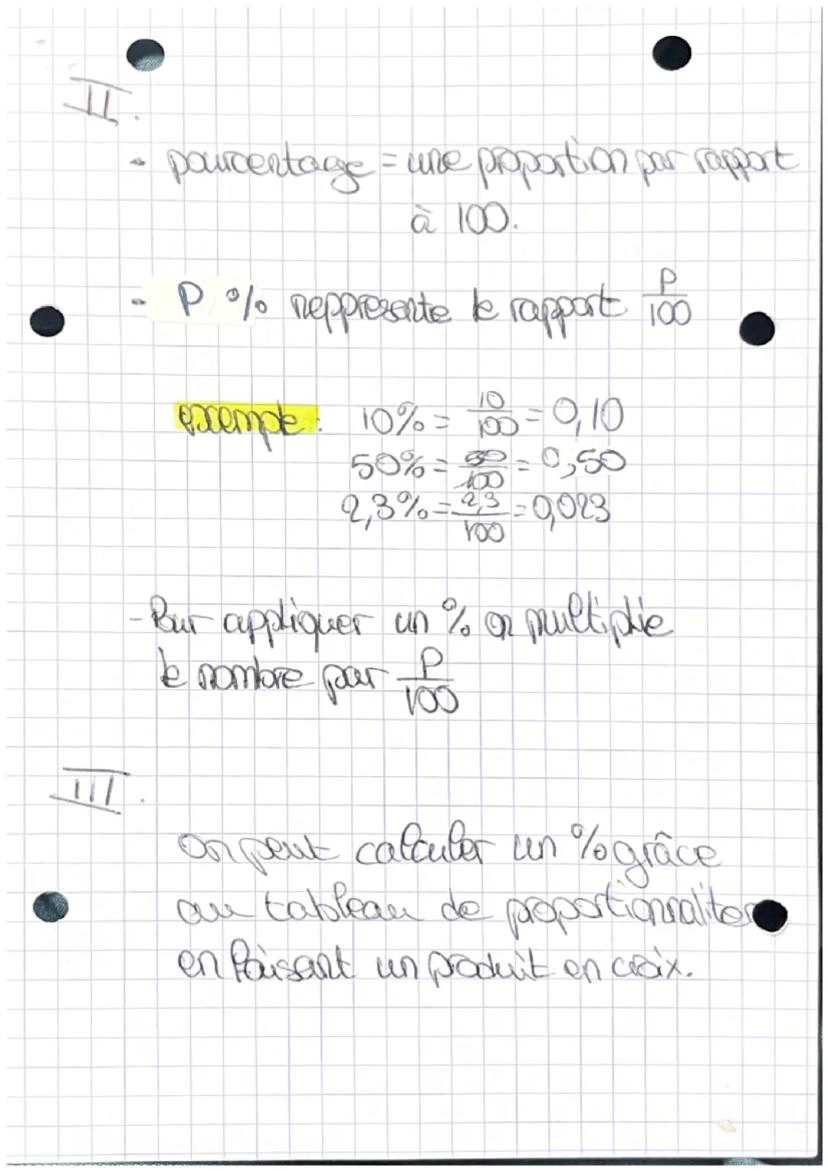 II.
- pourcentage = une proportion par rapport
à 100.
- P % reppresente le rapport P/100
exemple: 10% = 10/100 = 0,10
50% = 50/100 = 0,50
2,3% = 2,3/100 = 0,023
- Pour appliquer un % on multiplie
le nombre par P/100
III.
on peut calculer un % grâce
au tableau de proportionnaliter
en faisant un produit en croix.